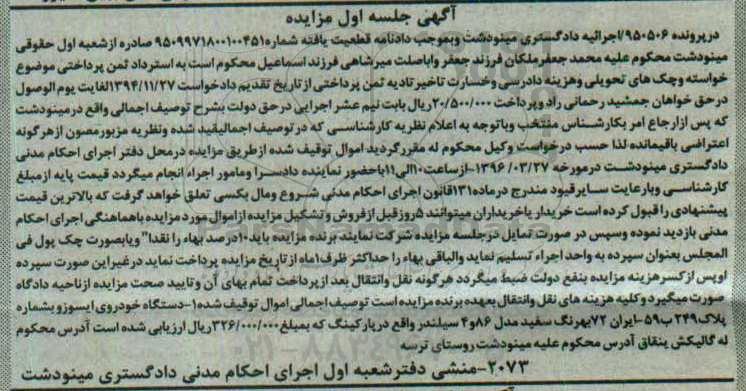 آگهی جلسه اول مزایده
در پرونده ۹۵۰۵۰۶/اجرائیه دادگستری مینودشت و بموجب دادنامه قطعیت یافته شماره ۹۵۰۹۹۷۱۸۰۰۱۰۰۴۵۱ صادره از شعبه اول حقوقی
مینودشت محکوم علیه محمد جعفر ملکان فرزند جعفر و اباصلت میرشاهی فرزند اسماعیل محکوم است به استرداد ثمن پرداختی موضوع
خواسته و چک های تحویلی وهزینه دادرسی وخسارت تاخیر تادیه ثمن پرداختی از تاریخ تقدیم دادخواست ۱۳۹۴/۱۱/۲۷ لغایت یوم الوصول
در حق خواهان جمشید رحمانی راد و پرداخت ۲۰/۵۰۰/۰۰۰ ریال بابت نیم عشر اجرایی در حق دولت بشرح توصیف اجمالی واقع در مینودشت
که پس از ارجاع امر بکارشناس منتخب وباتوجه به اعلام نظریه کارشناسی که در توصیف اجمالی قید شده ونظریه مزبور مصون از هرگونه
اعتراضی باقیمانده لذا حسب درخواست وکیل محکوم له مقرر گردید اموال توقیف شده از طریق مزایده در محل دفتر اجرای احکام مدنی
دادگستری مینودشت در مورخه ۱۳۹۶/۰۳/۲۷- از ساعت ۱۰ الی ۱۱ با حضور نماینده دادسرا و مامور اجراء انجام میگردد قیمت پایه از مبلغ
کارشناسی وبا رعایت سایر قیود مندرج در ماده ۱۳۱ قانون اجرای احکام مدنی شروع ومال بکسی تعلق خواهد گرفت که بالاترین قیمت
پیشنهادی را قبول کرده است خریدار یا خریداران میتوانند ۵ روز قبل از فروش و تشکیل مزایده از اموال مورد مزایده باهماهنگی اجرای احکام
مدنی بازدید نموده وسپس در صورت تمایل در جلسه مزایده شرکت نمایند برنده مزایده باید ۱۰ درصد بهاء را نقدا" ویا بصورت چک پول فی
المجلس بعنوان سپرده به واحد اجراء تسلیم نماید والباقی بهاء را حداکثر ظرف ۱ ماه از تاریخ مزایده پرداخت نماید در غیر این صورت سپرده
او پس از کسر هزینه مزایده بنفع دولت ضبط میگردد هرگونه نقل وانتقال بعد از پرداخت تمام بهای آن و تایید صحت مزایده از ناحیه دادگاه
صورت میگیرد و کلیه هزینه های نقل وانتقال بعهده برنده مزایده است توصیف اجمالی اموال توقیف شده ۱-دستگاه خودروی ایسوزو بشماره
پلاک ۲۴۹ ب ۵۹-ایران ۷۲ بهرنگ سفید مدل ۸۶ و ۴ سیلندر واقع در پارکینگ که بمبلغ ۳۲۶/۰۰۰/۰۰۰ ریال ارزیابی شده است آدرس محکوم
له گالیکش ینقاق آدرس محکوم علیه مینودشت روستای ترسه
۲۰۷۳-منشی دفتر شعبه اول اجرای احکام مدنی دادگستری مینودشت